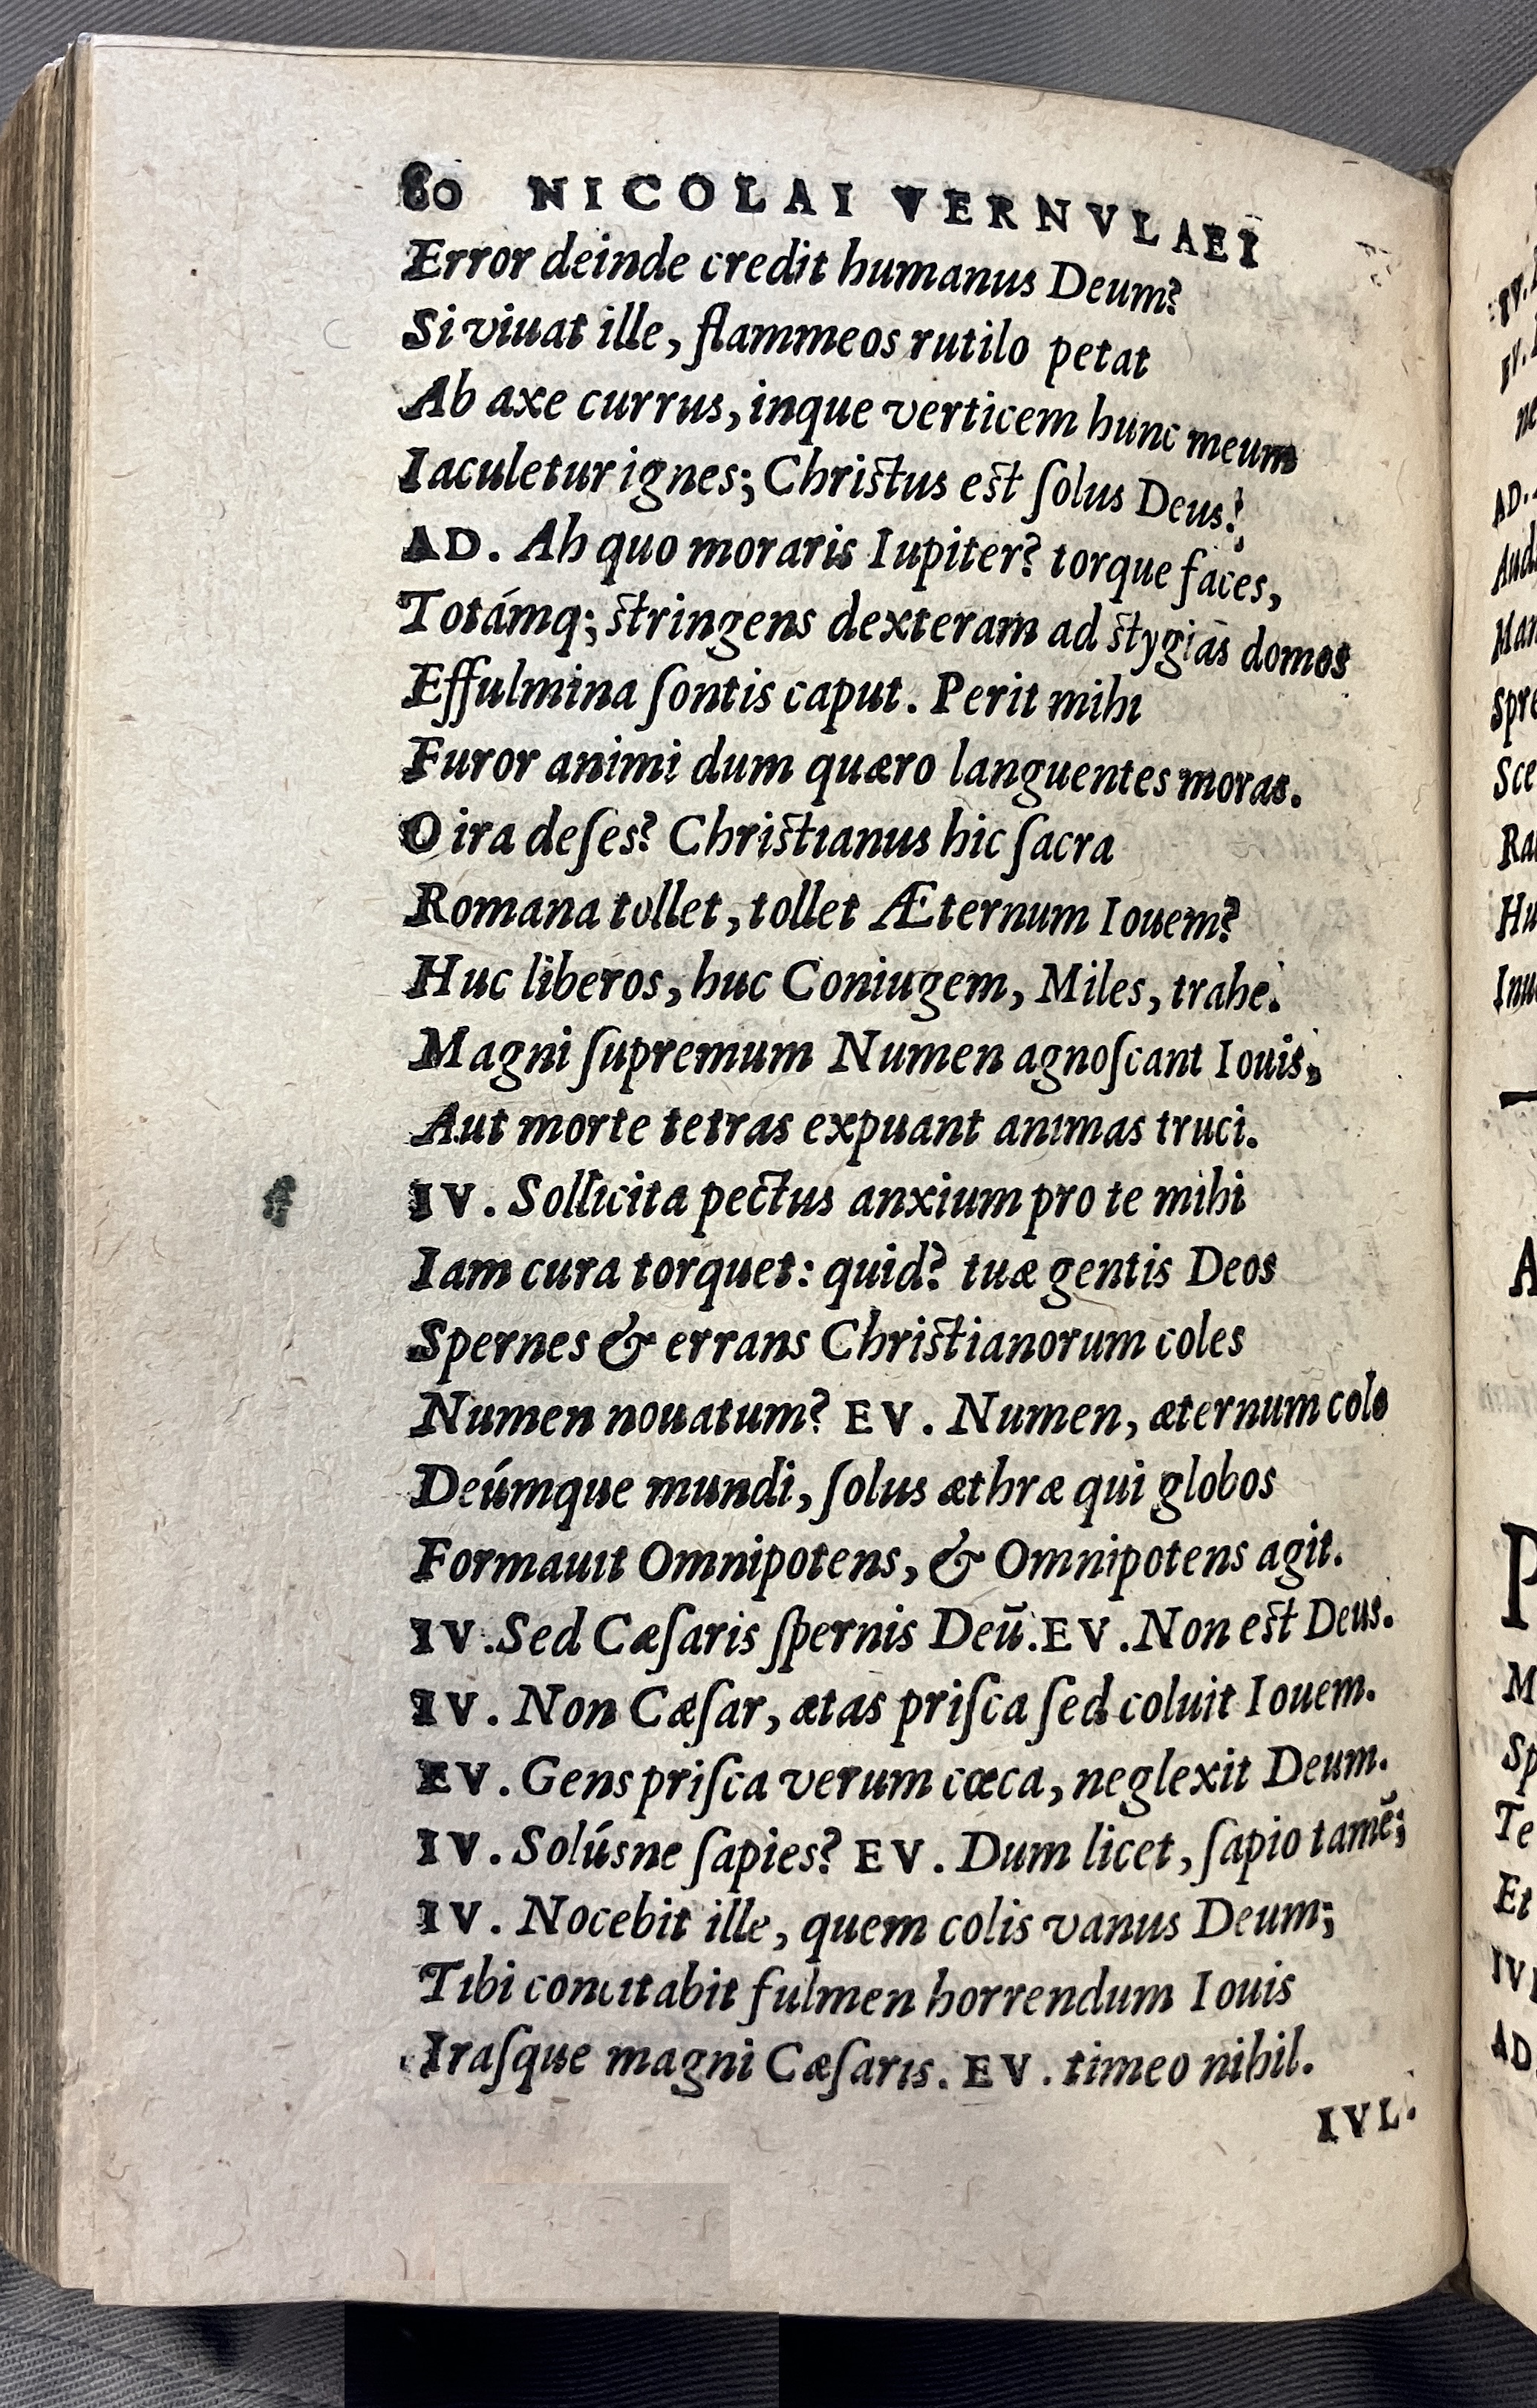 80 NICOLAI VERNVLAEI
Error deinde credit humanus Deum?
Si viuat ille, flammeos rutilo petat
Ab axe currus, inque verticem hunc meum
Iaculetur ignes; Christus est ſolus Deus!
AD. Ah quo moraris Iupiter? torque faces,
Totámq; stringens dexteram ad stygias domos
Effulmina ſontis caput. Perit mihi
Furor animi dum quæro languentes moras.
O ira deſes? Christianus hic ſacra
Romana tollet, tollet Æternum Iouem?
Huc liberos, huc Coniugem, Miles, trahe.
Magni ſupremum Numen agnoſcant Iouis,
Aut morte tetras expuant animas truci.
IV. Sollicita pectus anxium pro te mihi
Iam cura torquet: quid? tuæ gentis Deos
Spernes & errans Christianorum coles
Numen nouatum? EV. Numen, æternum colo
Deúmque mundi, ſolus æthræ qui globos
Formauit Omnipotens, & Omnipotens agit.
IV. Sed Cæſaris ſpernis Deū. EV. Non est Deus.
IV. Non Cæſar, ætas priſca ſed coluit Iouem.
EV. Gens priſca verum cœca, neglexit Deum.
IV. Solúsne ſapies? EV. Dum licet, ſapio tamē;
IV. Nocebit ille, quem colis vanus Deum;
Tibi concitabit fulmen horrendum Iouis
Iraſque magni Cæſaris. EV. timeo nihil.
IVL.